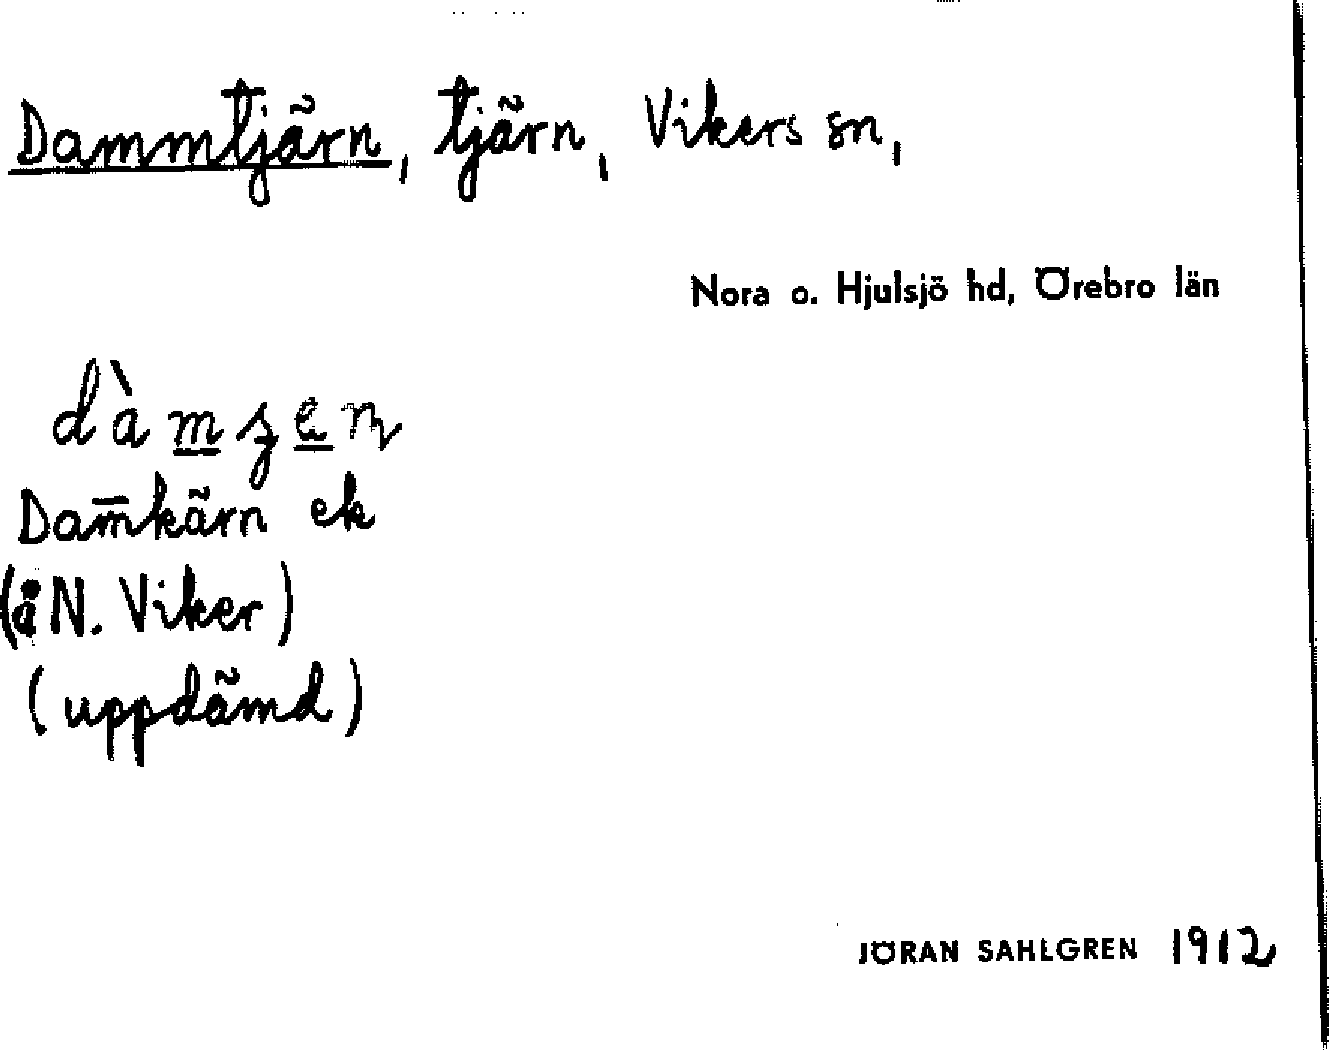 Dammtjärn, tjärn, Vikers sn,
Nora o. Hjulsjö hd, Örebro län
dàmʒen
Dam̄kärn ek
(å N. Viker)
(uppdämd)
JÖRAN SAHLGREN 1912